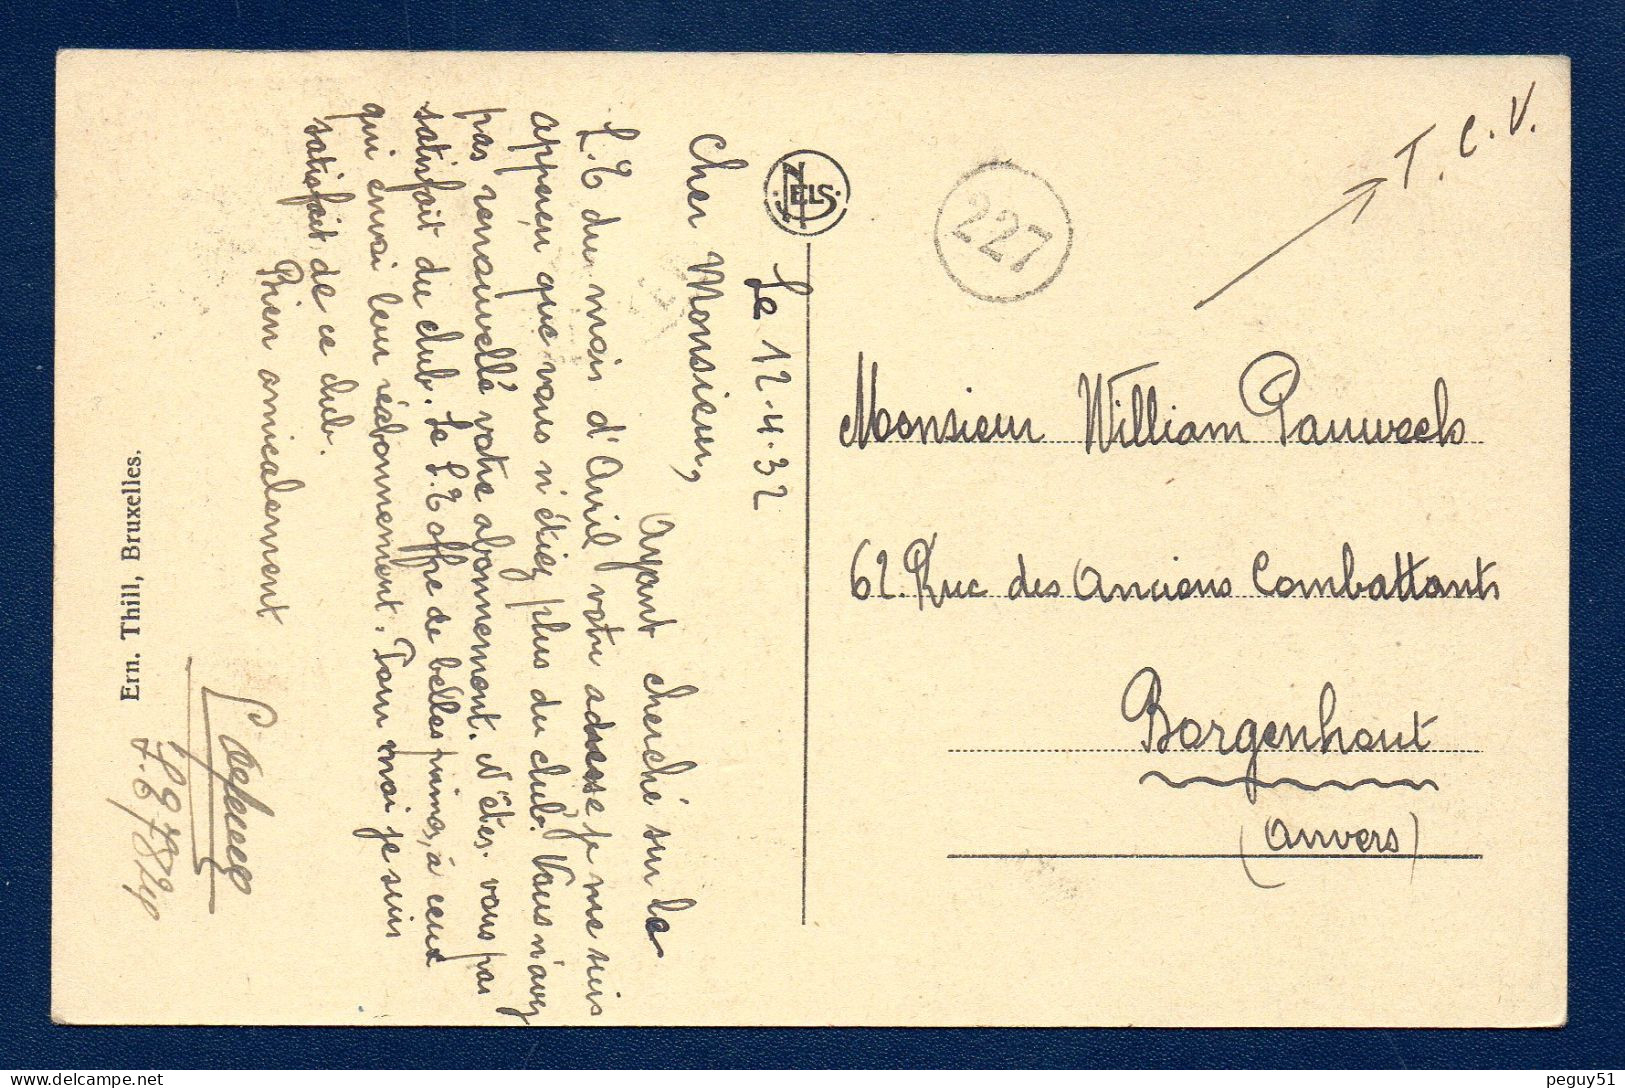 Le 12.4.32
Cher Monsieur,
Ayant cherché sur le
L.E du mois d'Avril votre adresse je me suis
apperçu que vous n'étiez plus du club. Vous n'avez
pas renouvellé votre abonnement. N'êtes-vous pas
satisfait du club. Le L.E offre de belles primes, à ceux
qui envoi leur réabonnement. Pour moi je suis
satisfait de ce club.
Bien amicalement
L.E 9784
Ern. Thill, Bruxelles.
NELS
227
T.C.V.
Monsieur William Pauweels
62. Rue des Anciens Combattants
Borgenhout
(Anvers)
peguy51